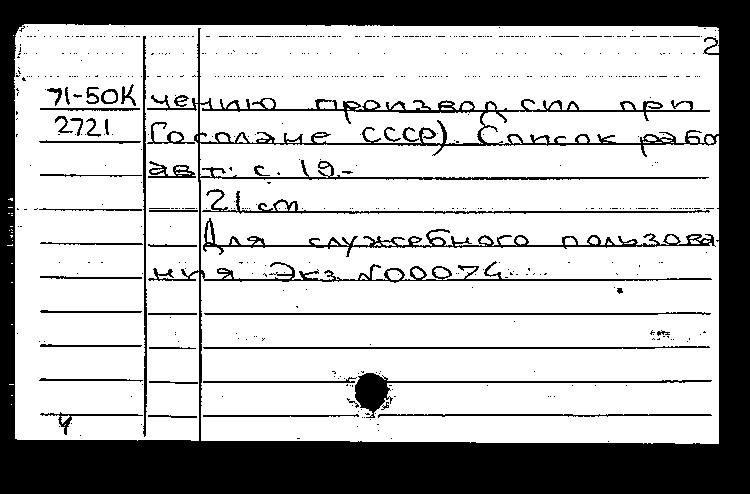 2
71-50К чению производ. сил при
2721 Госплане СССР). Список рабо
авт: с. 19.-
21 cm
Для служебного пользова-
ния Экз №00074
4